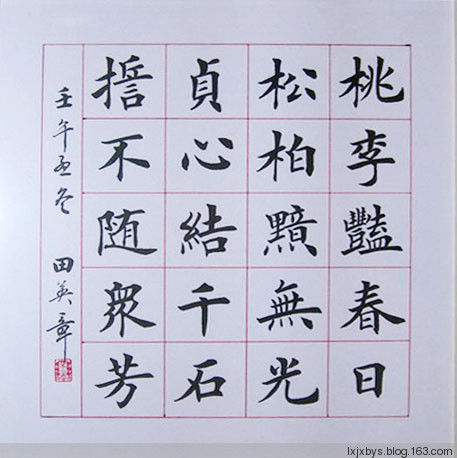 桃李豔春日
松柏黯無光
貞心結千石
誓不随衆芳
壬午孟冬 田英章
lxjxbys.blog.163.com